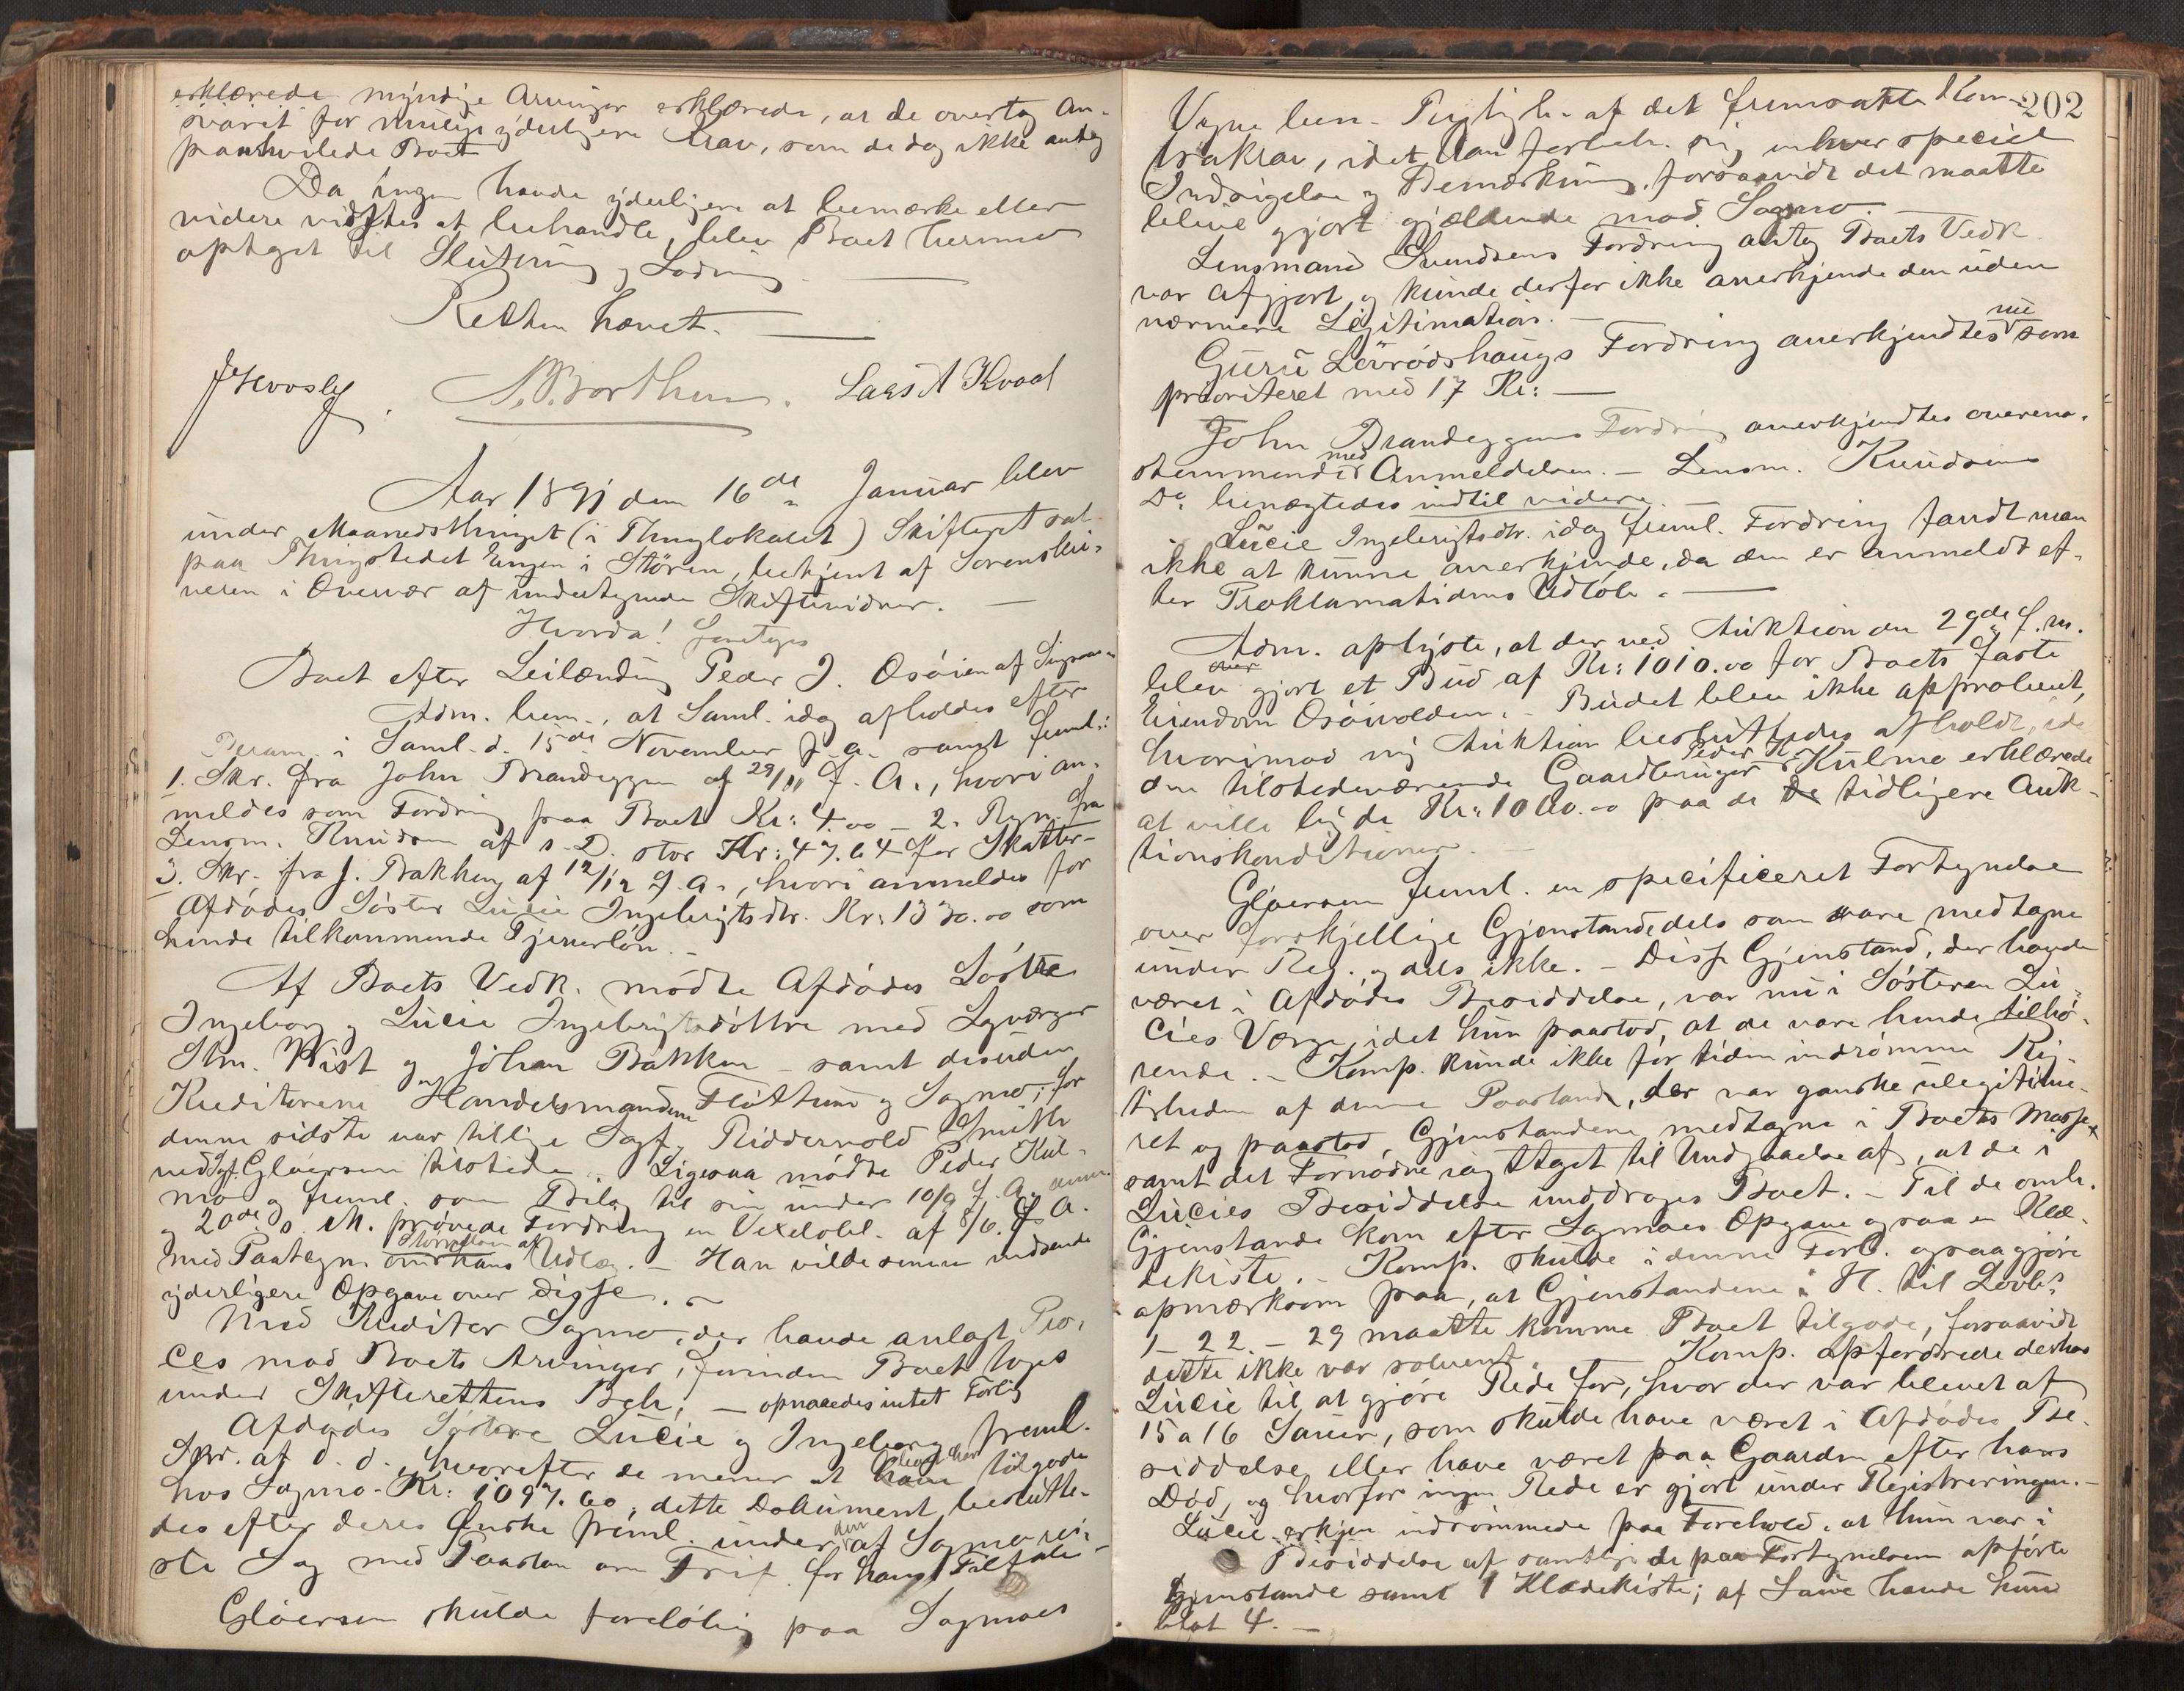 erklærede myndige Arvinger erklærede, at de overtog An-
svaret for mulige yderligere Krav, som de dog ikke antog
paahvilede Boet
Da Ingen havde yderligere at bemærke eller
videre vidstes at behandle, blev Boet hermed
optaget til Slutning og Lodning.
Retten hævet.
J Hovslef. N. Borthen. Lars A Kvaal
Aar 1891 den 16de Januar blev
under Maanedsthinget (i Thinglokalet) Skifteret sat
paa Thingstedet Engen i Støren, betjent af Sorenskri-
veren i Overvær af undertegnede Skiftevidner.
Hvorda! foretoges
Boet efter Leilænding Peder J. Osøien af
Adm. bem., at Saml. idag afholdes efter
Beram. i Saml. d. 15de November f. A. samt freml:
1. Skr. fra John Brandeggen af 29/11 f. A., hvori an-
meldes som Fordring paa Boet Kr: 4.00 – 2. Regn. fra
Lensm. Knudsen af s. D. stor Kr: 47.64 for Skatter –
3. Skr. fra J. Bakken af 12/12 f. A., hvori anmeldes for
Afdødes Søster Lucie Ingebrigtsdtr. Kr: 1330.00 som
hende tilkommende Tjenerløn. –
Af Boets Vedk. mødte Afdødes Søstre
Ingeborg og Lucie Ingebrigtsdøttre med Lagværger
Slm. Wist og Johan Bakken – samt desuden
Kreditorene Handelsmændene Fløttum og Sagmo; for
denne sidste var tillige Sagf. Riddervold Smith
ved Sgf. Gløersen tilstede. – Ligesaa mødte Peder Kul-
mo og freml. som Bilag til sin under 10/9 f. A. anm.
og 20de s. M. prøvede Fordring en Vexelobl. af 8/6 f. A.
med Paategn. om hans Udlæg. – Han vilde senere indsende
yderligere Opgave over disse. –
Med Kreditor Sagmo, der havde anlagt Pro-
ces mod Boets Arvinger, forinden Boet toges
under Skifterettens Beh., – opnaaedes intet Forlig
Afdødes Søstre Lucie og Ingeborg freml.
Skr. af d. d., hvorefter de mener at have tilgode
hos Sagmo Kr: 1097.60; dette Dokument beslutte-
des efter deres Ønske freml. under den af Sagmo rei-
ste Sag med Paastan om Frif. for hans Tiltale
Gløersen skulde foreløbig paa Sagmoes
202
Vegne bem. af det fremsatte Kon-
trakrav, idet han forbeh. sig enhver speciel
Indsigelse og Bemærkning, forsaavidt det maatte
blive gjort gjældende mod Sagmo. –
Lensmand Knudsens Fordring antog Boets Vedk.
var afgjort og kunde derfor ikke anerkjende den uden
nærmere Legitimation. –
Guru Løvrødshaugs Fordring anerkjendtes nu som
prioriteret med 17 Kr: –
John Brandeggens Fordring anerkjendtes overens-
stemmende med Anmeldelsen. – Lensm. Knudsens
Do. benægtedes indtil videre. –
Lucie Ingebrigtsdtr. idag freml. Fordring fandt man
ikke at kunne anerkjende, da den er anmeldt ef-
ter Proklamatidens Udløb. –
Adm. oplyste, at der ved Auktion den 29de f. M.
blev gjort et Bud af Kr: 1010.00 for Boets faste
Eiendom Osøivolden. – Budet blev ikke approbert,
hvorimod ny Auktion besluttedes afholdt, ide
den tilstedeværende Gaardbruger Peder H. Kulmo erklærede
at ville byde Kr: 1000.00 paa de tidligere Auk-
tionskonditioner. –
Gløersen freml. en specificeret Fortegnelse
over forskjellige Gjenstande dels som vare medtagne
under Reg. og dels ikke. – Disse Gjenstand, der havde
været i Afdødes Besiddelse, var nu i Søsteren Lu-
cies Værge, idet hun paastod, at de vare hende tilhø-
rende. – Komp. kunde ikke for tiden indrømme Rig-
tigheden af denne Paastand, der var ganske ulegitime-
ret og paastod, Gjenstandene medtagne i Boets Masse
samt det Fornødne iagttaget til Undgaaelse af, at de i
Lucies Besiddelse unddroges Boet. – Til de omh.
Gjenstande kom efter Sagmoes Opgave ogsaa en Klæ-
dekiste. – Komp. skulde i denne Forb. ogsaa gjøre
opmærksom paa, at Gjenstandene i H. til Lovbs
1 – 22 – 29 maatte komme Boet tilgode, forsaavidt
dette ikke var solvent. – Komp. opfordrede derhos
Lucie til at gjøre Rede for, hvor der var blevet af
15 a 16 Sauer, som skulde have været i Afdødes Be-
siddelse eller have været paa Gaarden efter hans
Død, og hvorfor ingen Rede er gjort under Registreringen. –
Lucie erkjen indrømmede paa Forehold, at hun var i
Besiddelse af samtlige de paa Fortegnelsen opførte
Gjenstande samt 1 Klædekiste; af Saue havde hun
blot 4. –